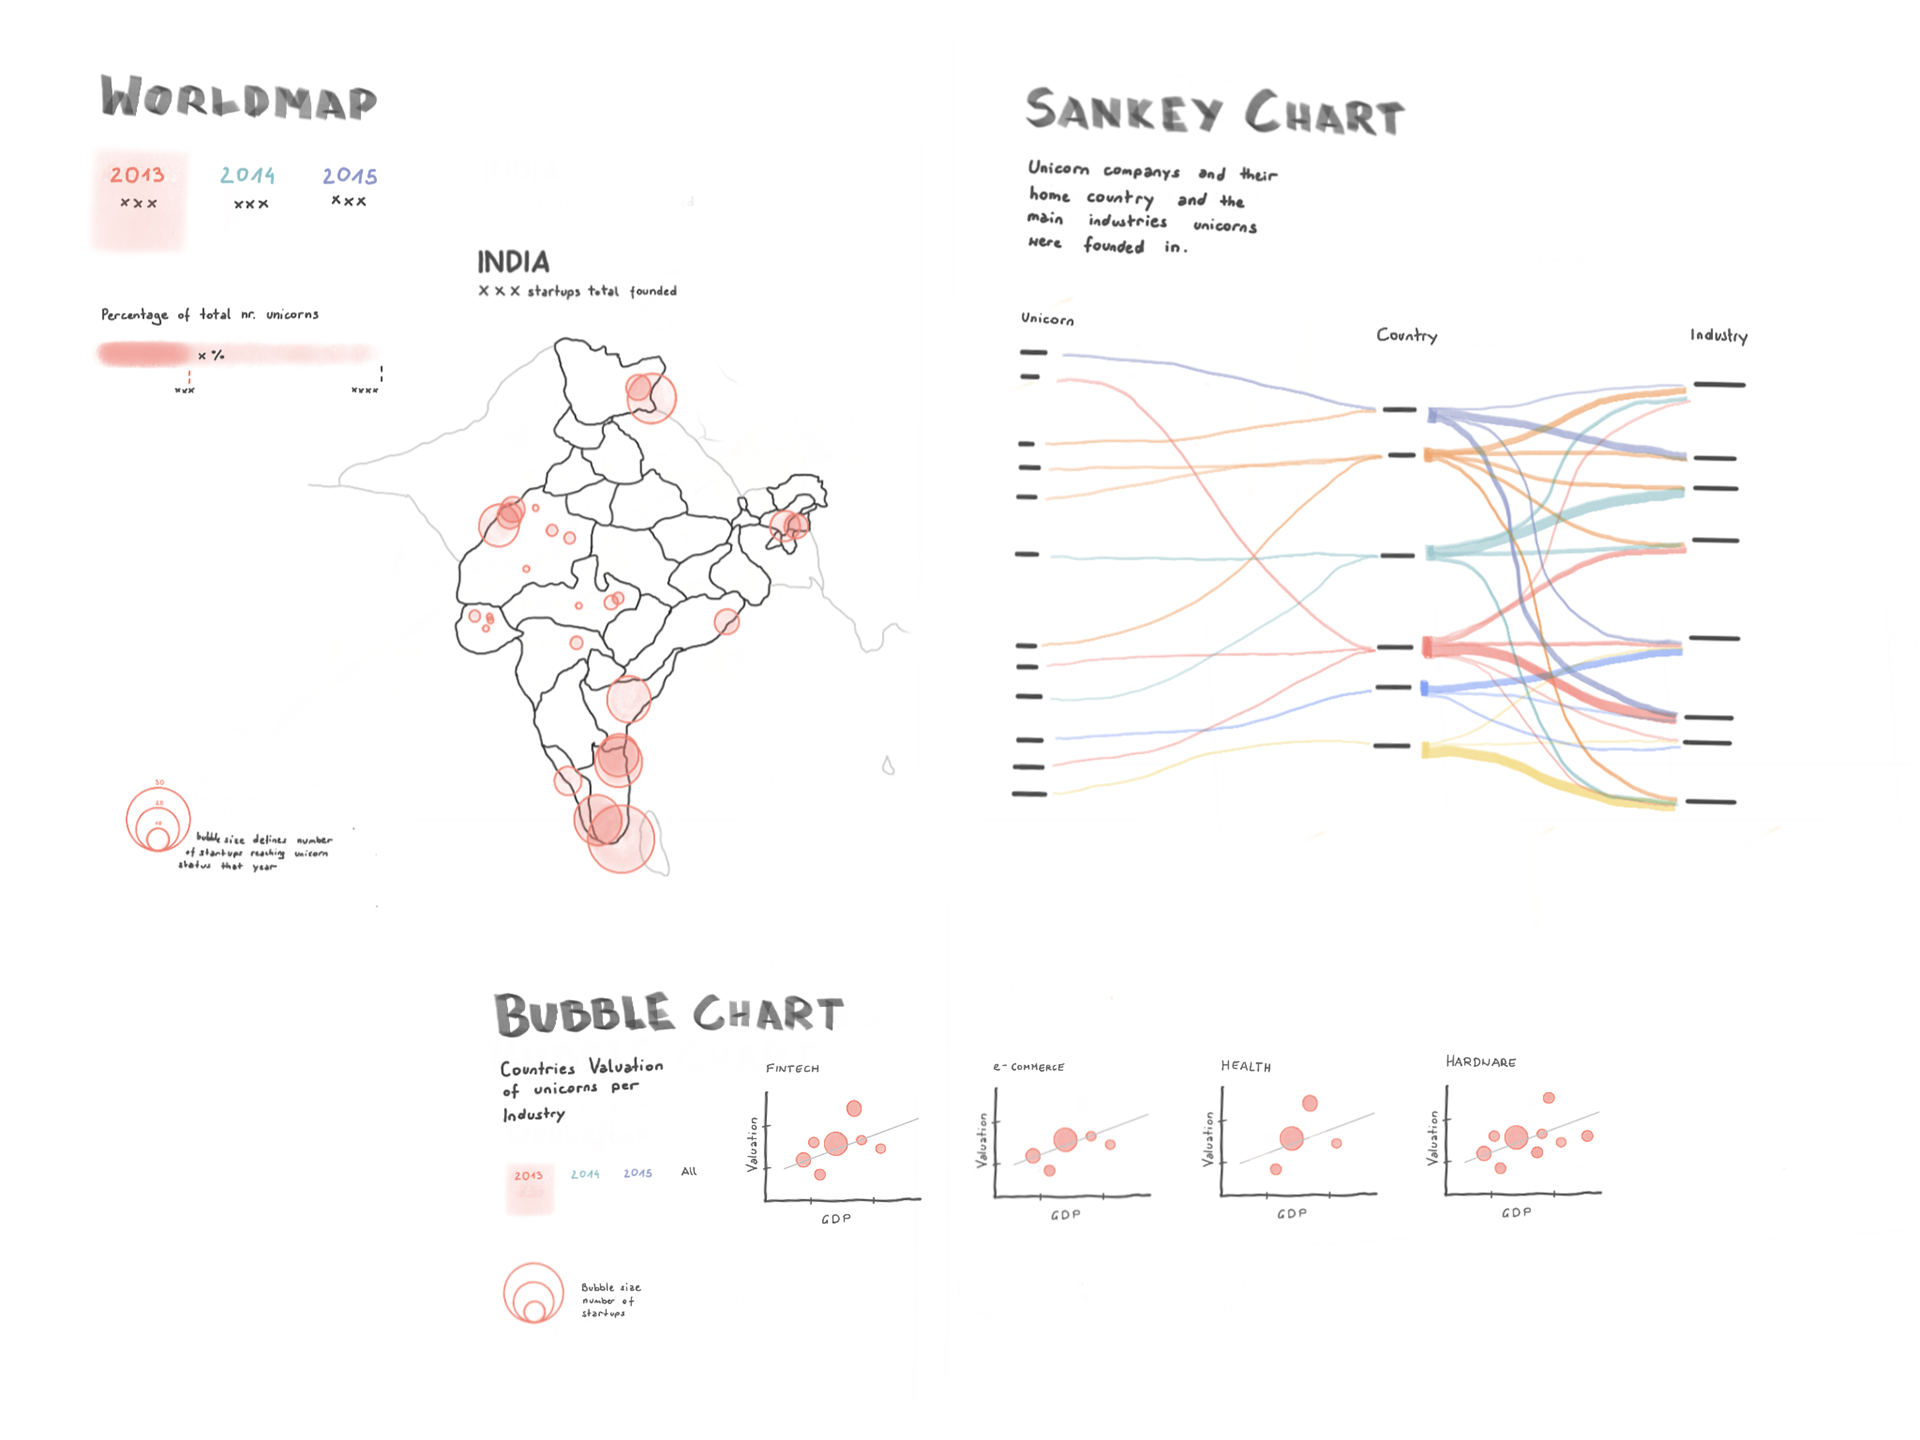 WORLDMAP
2013 2014 2015
xxx xxx xxx
INDIA
X X X startups total founded
Percentage of total nr. unicorns
x %
xxx xxxx
30
bubble size defines number
of startups reaching unicorn
status that year
SANKEY CHART
Unicorn companys and their
home country and the
main industries unicorns
were founded in.
Unicorn
Country
Industry
BUBBLE CHART
Countries Valuation
of unicorns per
Industry
2013 2014 2015 All
Bubble size
number of
startups
FINTECH
Valuation
GDP
e-COMMERCE
Valuation
GDP
HEALTH
Valuation
GDP
HARDWARE
Valuation
GDP